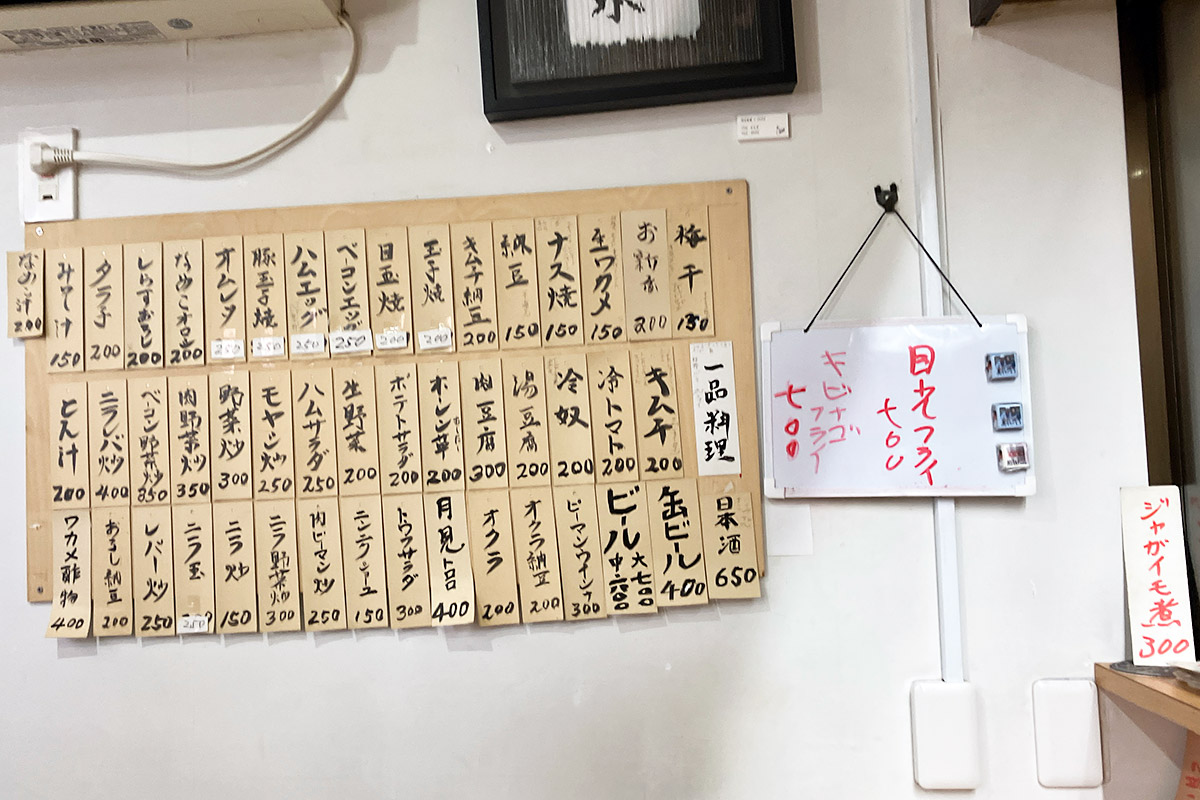 梅干
お新香
200
生ワカメ
150
ナス焼
150
納豆
150
キムチ納豆
200
玉子焼
200
目玉焼
200
ベーコンエッグ
250
ハムエッグ
250
豚玉子焼
250
オムレツ
250
なめこオロシ
200
しらすおろし
200
タラ子
200
みそ汁
150
なめこ汁
200
一品料理
キムチ
200
冷トマト
200
冷奴
200
湯豆腐
200
肉豆腐
300
ホーレン草
200
ポテトサラダ
200
生野菜
200
ハムサラダ
250
モヤシ炒
250
野菜炒
300
肉野菜炒
350
ベーコン野菜炒
350
ニラレバ炒
400
とん汁
200
日本酒
650
缶ビール
400
ビール
大七〇〇
中・六〇〇
ピーマンウインナ
300
オクラ納豆
200
オクラ
200
月見トロロ
400
トウフサラダ
300
ニンニクショーユ
150
肉ピーマン炒
250
ニラ野菜炒
300
ニラ炒
150
ニラ玉
250
レバー炒
250
おろし納豆
200
ワカメ酢物
400
目光フライ
七〇〇
キビナゴ
フライ
七〇〇
ジャガイモ煮
300